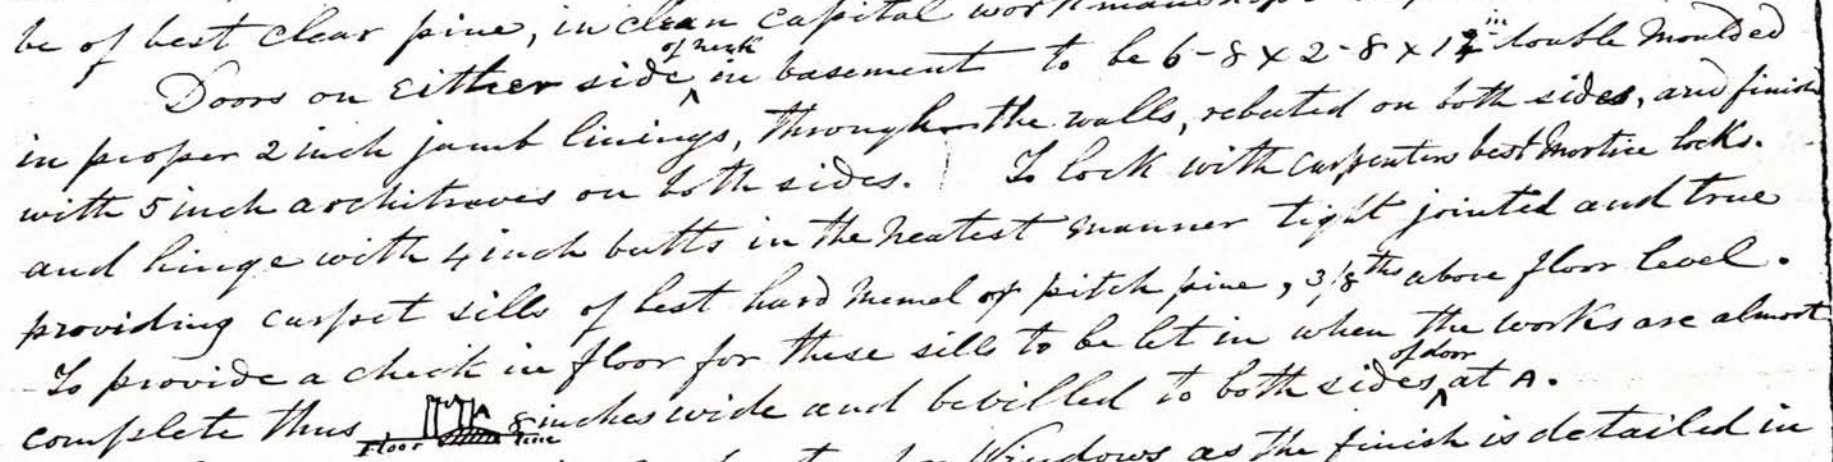 be of best clear pine, in clean capital workmanship
Doors on Either side of neck in basement to be 6-8 x 2-8 x 1¾ in double Moulded
in proper 2 inch jamb linings, through the walls, rebated on both sides, and finish
with 5 inch architraves on both sides. To lock with carpenters best Mortice locks.
and hinge with 4 inch butts in the Neatest manner tight jointed and true
providing carpet sills of best hard Memel or pitch pine, 3/8ths above floor level.
To provide a check in floor for these sills to be let in when the works are almost
complete thus, A Floor line 8 inches wide and bevilled to both sides of door at A.
Windows as the finish is detailed in